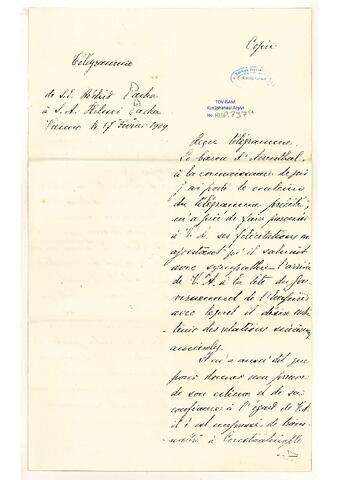 Copie
Télégramme
TDV İSAM
Kütüphanesi Arşivi
No HHP. 7374
de S.E. Réchid Pacha
à S.A. Hilmi Pacha
Vienne le 17 Février 1909
Reçu télégramme.
Le baron d'Aerenthal,
à la connaissance de qui
j'ai porté le contenu
du télégramme précité,
m'a prié de faire parvenir
à V.A. ses félicitations en
ajoutant qu'il saluait
avec sympathie l'arrivée
de V.A. à la tête du Gou-
vernement de l'Empire
avec lequel il désire entre-
tenir des relations
amicales.
Il m'a aussi dit que
pour donner une preuve
de son estime et de sa
confiance à l'égard de V.A.
il s'est empressé de
à Constantinople